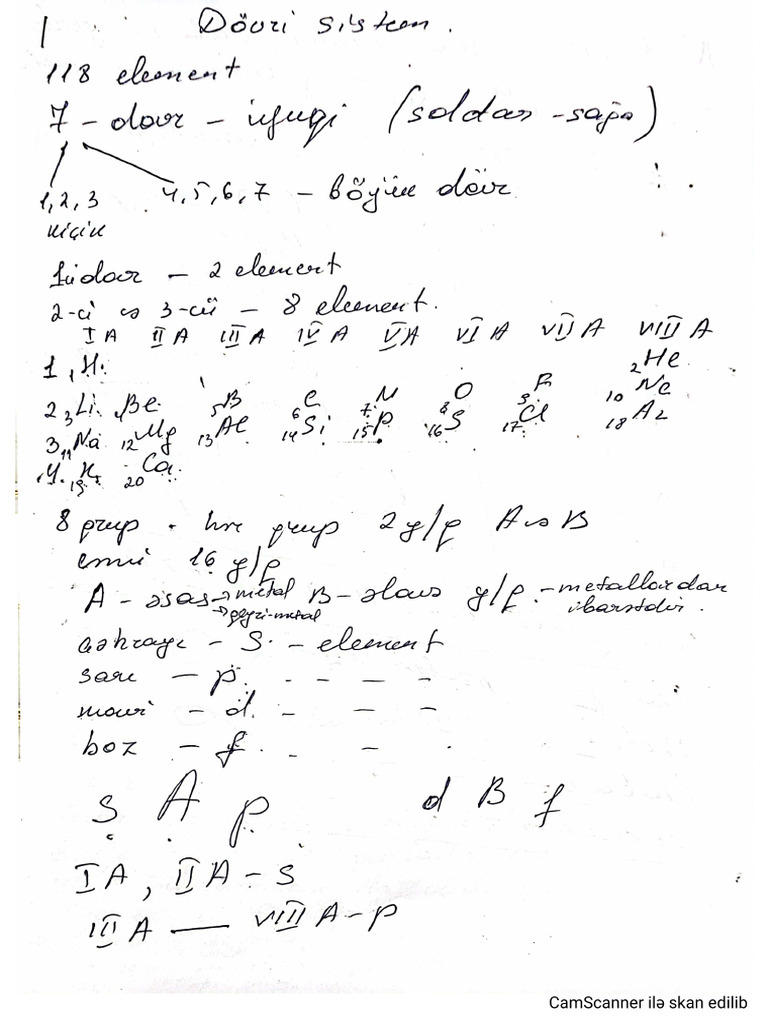 1 Dövri sistem.
118 element
7 - dövr - üfuqi (soldan - sağa)
1, 2, 3 4, 5, 6, 7 - böyük dövr
kiçik
1-ci dövr - 2 element
2-ci və 3-cü - 8 element.
I A II A III A IV A V A VI A VII A VIII A
1 1H 2He
2 3Li 4Be 5B 6C 7N 8O 9F 10Ne
3 11Na 12Mg 13Al 14Si 15P 16S 17Cl 18Ar
4. 19K 20Ca
8 qrup. hər qrup 2 y/q A və B
cəmi 16 y/q
A - əsas → metal B - əlavə y/q. - metallardan
→ qeyri-metal ibarətdir.
çəhrayı - S - element
sarı - p. - - - -
mavi - d. - - -
boz - f. - -
s A p d B f
I A, II A - s
III A — VIII A - p
CamScanner ilə skan edilib